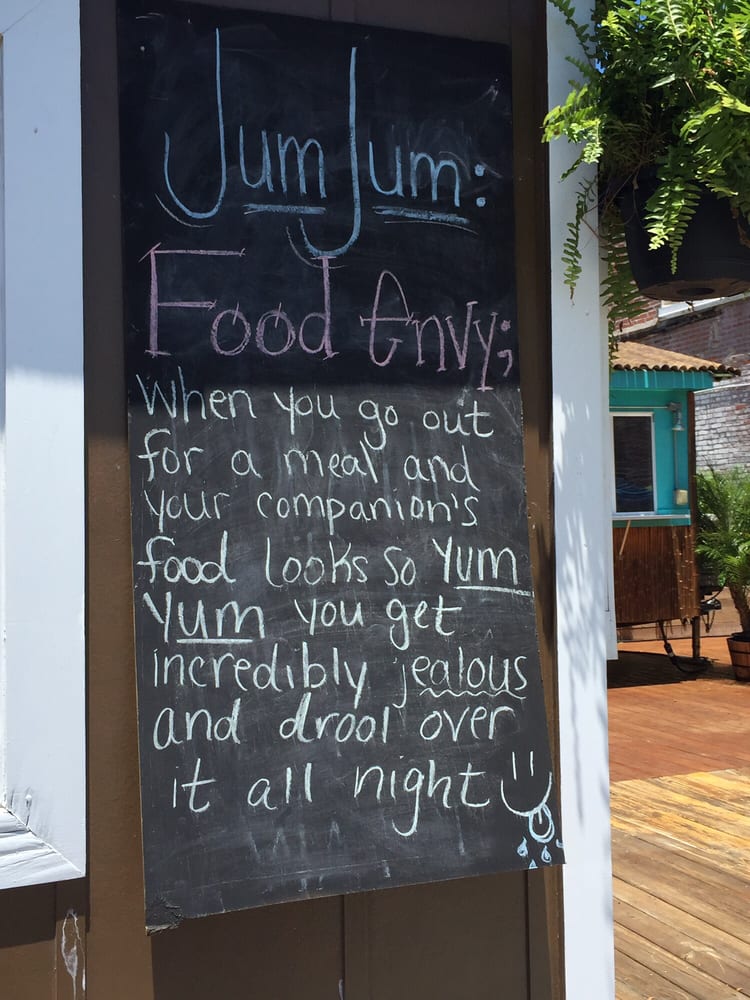 JumJum:
Food Envy;
When you go out
for a meal and
your companion's
food looks so Yum
Yum you get
incredibly jealous
and drool over
it all night